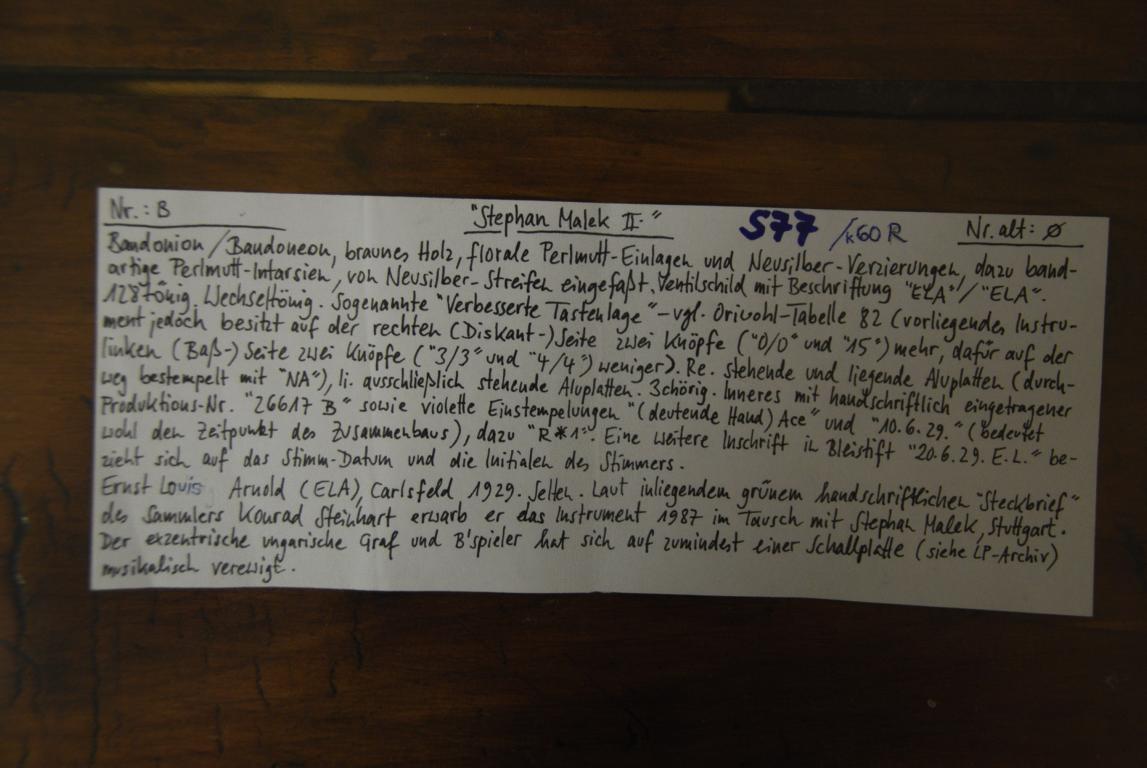 Nr.: B "Stephan Malek II." 577 /k60 R Nr. alt: ø
Bandonion/Bandoneon, braunes Holz, florale Perlmutt-Einlagen und Neusilber-Verzierungen, dazu band-
artige Perlmutt-Intarsien, von Neusilber-Streifen eingefaßt. Ventilschild mit Beschriftung "ELA"/"ELA".
128tönig. Wechseltönig. Sogenannte "Verbesserte Tastenlage" - vgl. Oriwohl-Tabelle 82 (vorliegendes Instru-
ment jedoch besitzt auf der rechten (Diskant-)Seite zwei Knöpfe ("0/0" und "15") mehr, dafür auf der
linken (Baß-)Seite zwei Knöpfe ("3/3" und "4/4") weniger). Re. stehende und liegende Aluplatten (durch-
weg bestempelt mit "NA"), li. ausschließlich stehende Aluplatten. 3chörig. Inneres mit handschriftlich eingetragener
Produktions-Nr. "26617 B" sowie violette Einstempelungen "(deutende Hand) Ace" und "10.6.29." (bedeutet
wohl den Zeitpunkt des Zusammenbaus), dazu "R*1". Eine weitere Inschrift in Bleistift "20.6.29. E.L." be-
zieht sich auf das Stimm-Datum und die Initialen des Stimmers.
Ernst Louis Arnold (ELA), Carlsfeld, 1929. Selten. Laut inliegendem grünem handschriftlichen "Steckbrief"
des Sammlers Konrad Steinhart erwarb er das Instrument 1987 im Tausch mit Stephan Malek, Stuttgart.
Der exzentrische ungarische Graf und B'spieler hat sich auf zumindest einer Schallplatte (siehe LP-Archiv)
musikalisch verewigt.